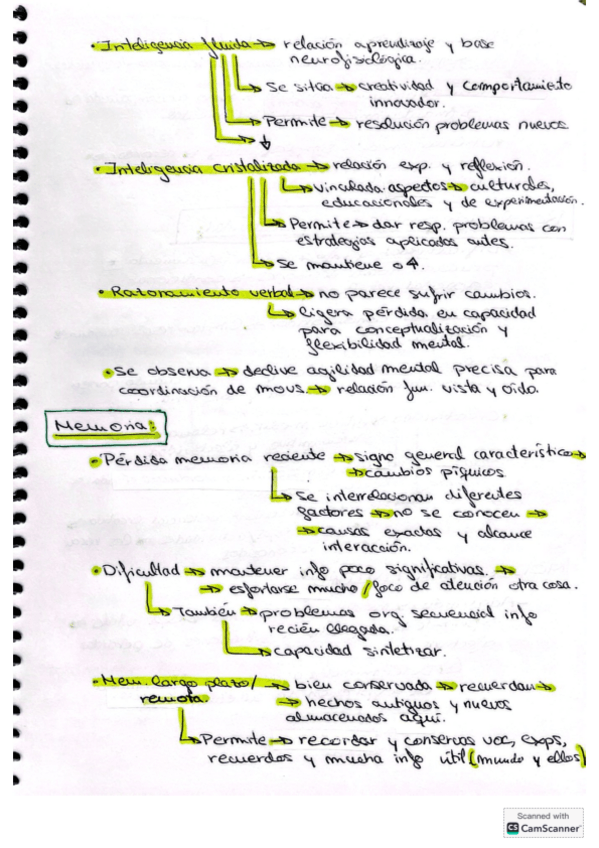 • Inteligencia fluida → relación aprendizaje y base
neurofisiológica.
↳ Se sitúa → creatividad y comportamiento
innovador.
↳ Permite → resolución problemas nuevos
↳ ↓
• Inteligencia cristalizada → relación exp. y reflexión.
↳ vinculada aspectos → culturales,
educacionales y de experimentación.
↳ Permite → dar resp. problemas con
estrategias aplicadas antes.
↳ Se mantiene o ↑.
• Razonamiento verbal → no parece sufrir cambios.
↳ ligera pérdida en capacidad
para conceptualización y
flexibilidad mental.
• Se observa → declive agilidad mental precisa para
coordinación de movs. → relación fun. vista y oído.
Memoria:
• Pérdida memoria reciente → signo general característico →
→ cambios psíquicos
↳ Se interrelacionan diferentes
factores → no se conocen →
→ causas exactas y alcance
interacción.
• Dificultad → mantener info poco significativas. →
→ esfortarse mucho / foco de atención otra cosa.
↳ También → problemas org secuencial info
recién llegada.
↳ capacidad sintetizar.
• Mem. largo plazo / → bien conservada → recuerdan →
remota. → hechos antiguos y nuevos
almacenados aquí.
↳ Permite → recordar y conservas voc, exps,
recuerdos y mucha info útil (mundo y ellos)
Scanned with
CS CamScanner